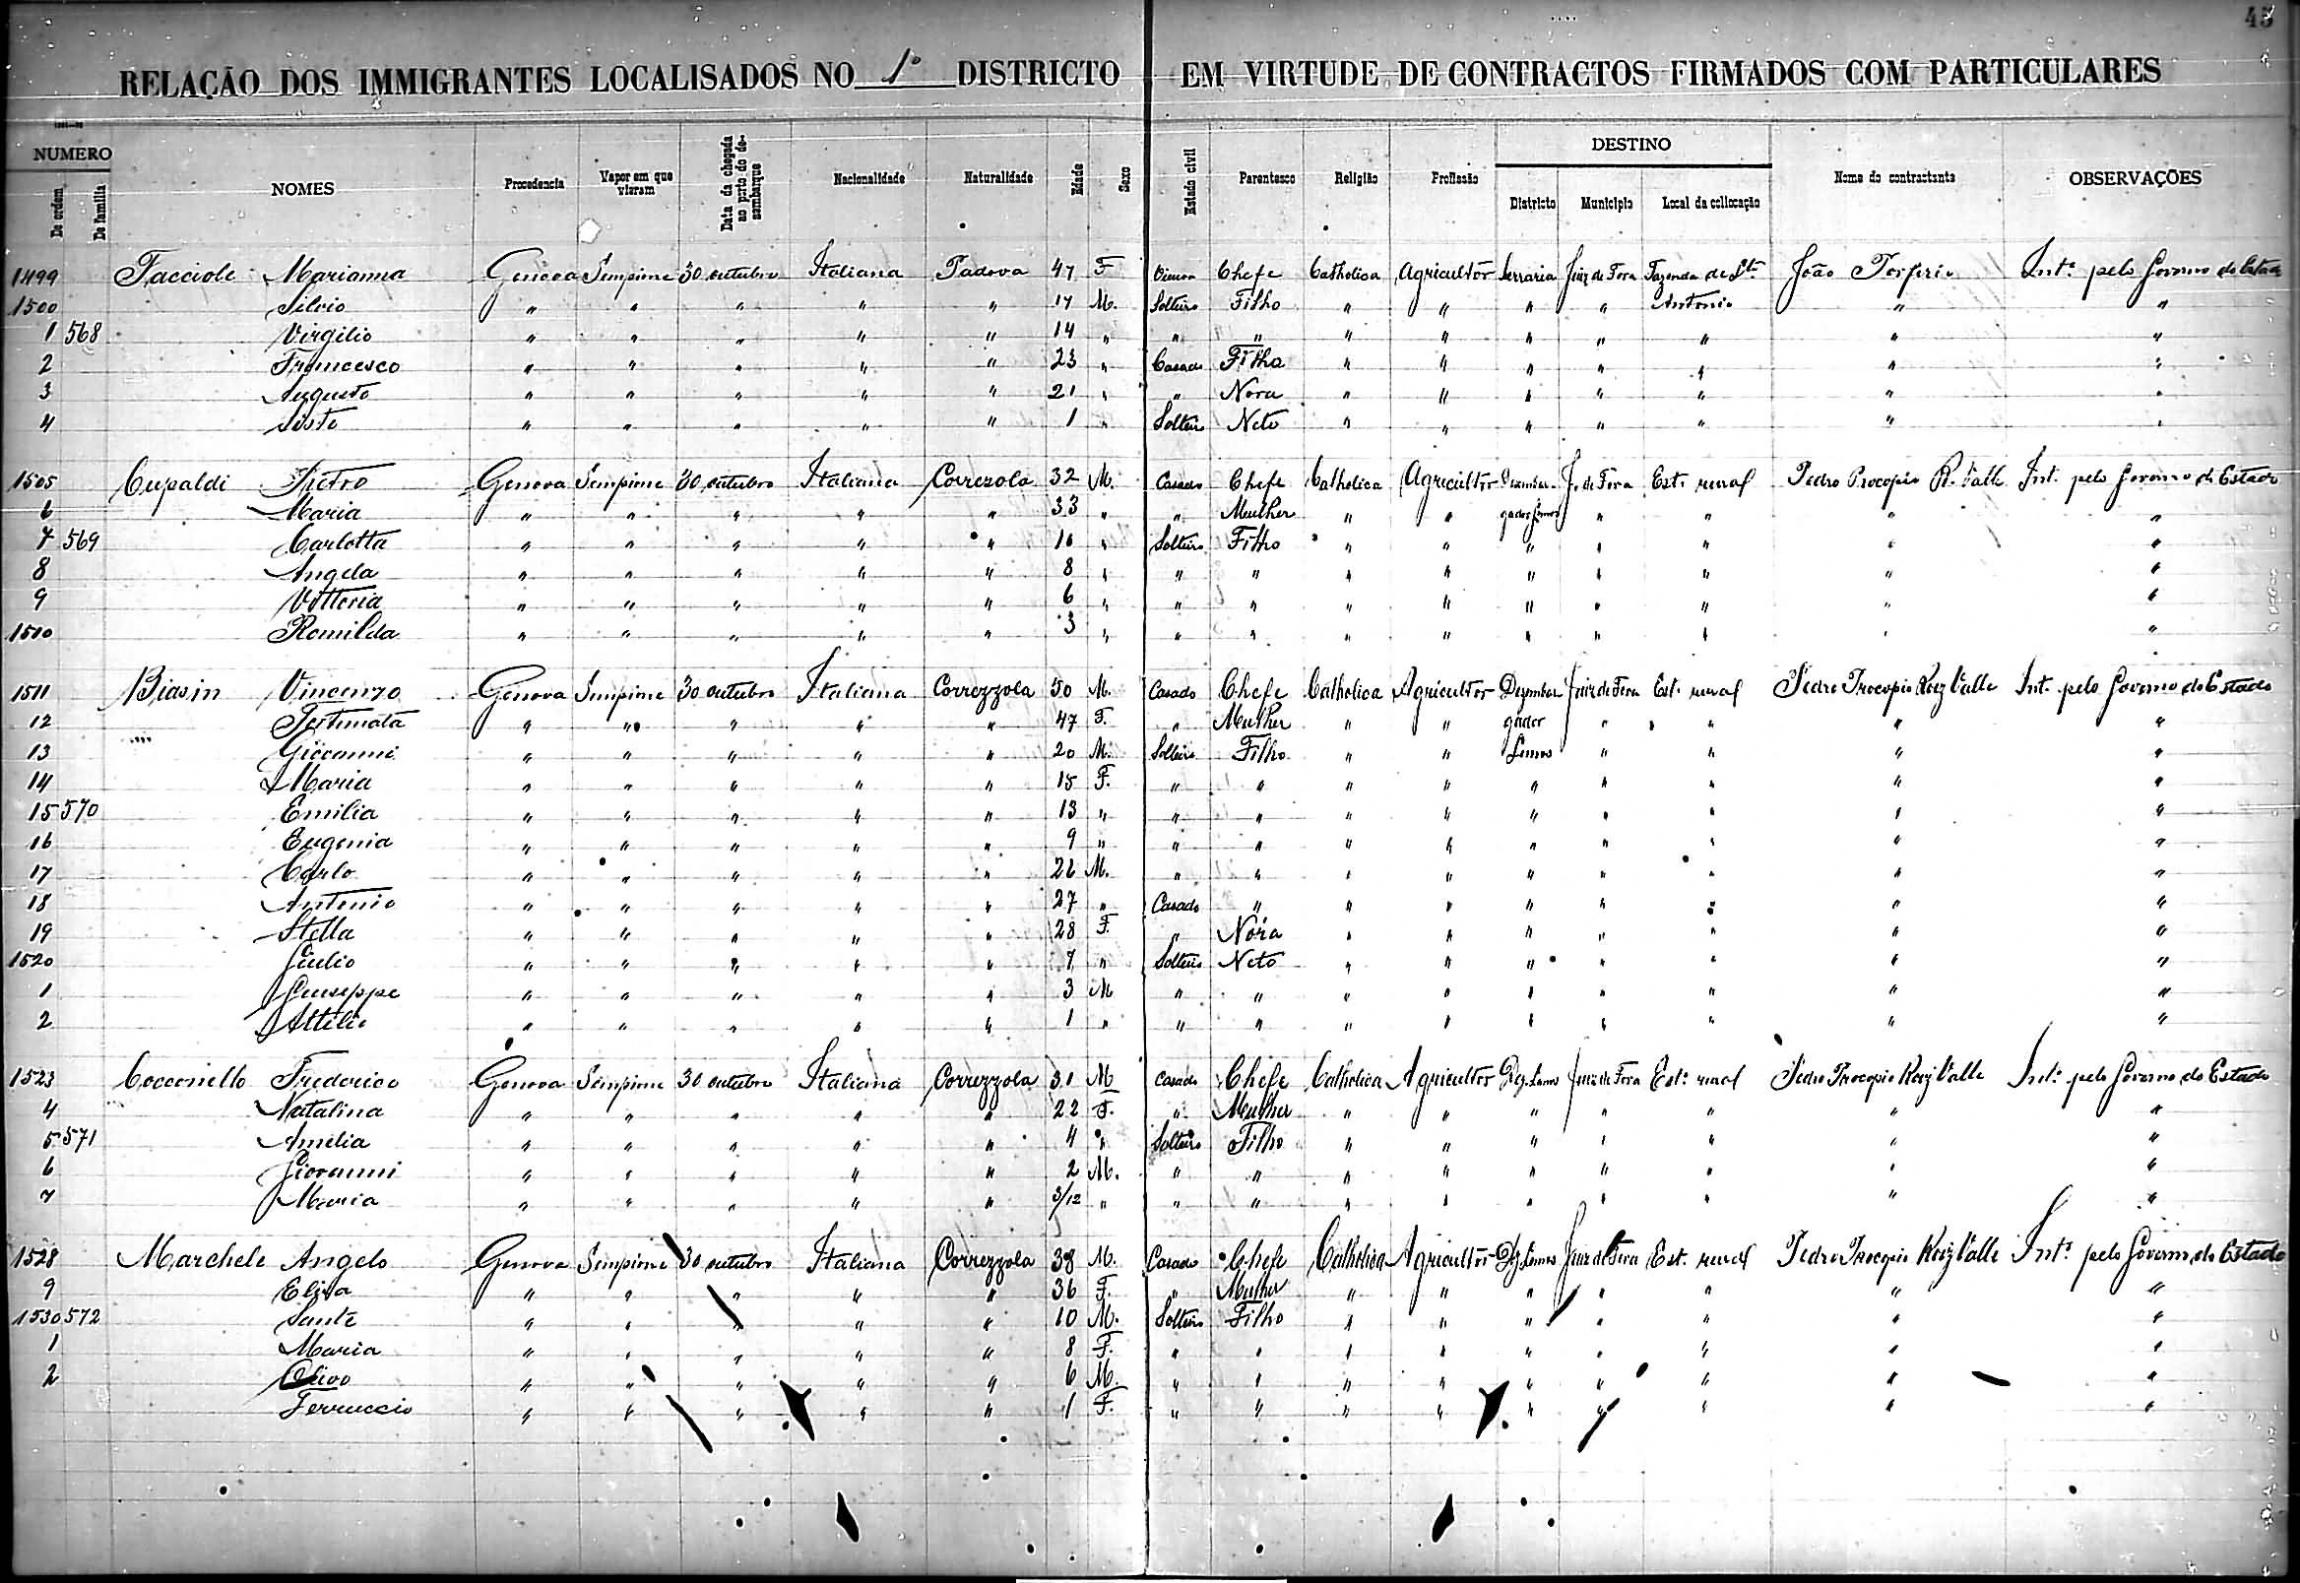 45
RELAÇÃO DOS IMMIGRANTES LOCALISADOS NO 1º DISTRICTO EM VIRTUDE DE CONTRACTOS FIRMADOS COM PARTICULARES
NUMERO DESTINO
De ordem De familia NOMES Procedencia Vapor em que vieram Data da chegada ao porto do desembarque Nacionalidade Naturalidade Edade Sexo Estado civil Parentesco Religião Profissão Districto Municipio Local da collocação Nome do contractante OBSERVAÇÕES
1499 Facciole Marianna Genova Sempione 30 outubro Italiana Padova 47 F Viuva Chefe Catholica Agricultor Serraria Juiz de Fora Fazenda de Stº João Porfirio Intº pelo Governo do Estado
1500 Silvio " " " " " 17 M. Solteiro Filho " " " " Antonio " "
1 568 Virgilio " " " " " 14 " " " " " " " " " "
2 Francesco " " " " " 23 " Casado Filho " " " " " " "
3 Augusto " " " " " 21 " " Nora " " " " " " "
4 Sisto " " " " " 1 " Solteiro Neto " " " " " " "
1505 Cupaldi Pietro Genova Sempione 30 outubro Italiana Correzola 32 M. Casado Chefe Catholica Agricultor Dezembar- J. de Fora Est. rural Pedro Procopio R. Valle Int. pelo Governo do Estado
6 Maria " " " " " 33 " " Mulher " " gador Lemos " " " "
7 569 Carlotta " " " " " 10 " Solteiro Filho " " " " " " "
8 Angela " " " " " 8 " " " " " " " " " "
9 Vittoria " " " " " 6 " " " " " " " " " "
1510 Romilda " " " " " 3 " " " " " " " " " "
1511 Biasin Vincenzo Genova Sempione 30 outubro Italiana Correzzola 50 M. Casado Chefe Catholica Agricultor Dezembar Juiz de Fora Est. rural Pedro Procopio Roiz Valle Int. pelo Governo do Estado
12 Fortunata " " " " " 47 F. " Mulher " " gador " " " "
13 Giovanni " " " " " 20 M. Solteiro Filho " " Lemos " " " "
14 Maria " " " " " 15 F. " " " " " " " " "
15 570 Emilia " " " " " 13 " " " " " " " " " "
16 Eugenia " " " " " 9 " " " " " " " " " "
17 Carlo " " " " " 26 M. " " " " " " " " "
18 Antonio " " " " " 27 " Casado " " " " " " " "
19 Stella " " " " " 28 F. " Nora " " " " " " "
1520 Giulio " " " " " 7 " Solteiro Neto " " " " " " "
1 Giuseppe " " " " " 3 M " " " " " " " " "
2 Attilio " " " " " 1 " " " " " " " " " "
1523 Cocconello Frederico Genova Sempione 30 outubro Italiana Correzzola 31 M Casado Chefe Catholica Agricultor Dez. Lemos Juiz de Fora Est. rural Pedro Procopio Roiz Valle Int. pelo Governo do Estado
4 Natalina " " " " " 22 F. " Mulher " " " " " " "
5 571 Amelia " " " " " 4 " Solteiro Filho " " " " " " "
6 Giovanni " " " " " 2 M. " " " " " " " " "
7 Maria " " " " " 3/12 " " " " " " " " " "
1528 Marchele Angelo Genova Sempione 30 outubro Italiana Correzzola 38 M. Casado Chefe Catholica Agricultor Dez. Lemos Juiz de Fora Est. rural Pedro Procopio Roiz Valle Intº pelo Governo do Estado
9 Elisa " " " " " 36 F. " Mulher " " " " " " "
1530 572 Sante " " " " " 10 M. Solteiro Filho " " " " " " "
1 Maria " " " " " 8 F. " " " " " " " " "
2 Olivo " " " " " 6 M. " " " " " " " " "
Ferruccio " " " " " 1 F. " " " " " " " " "